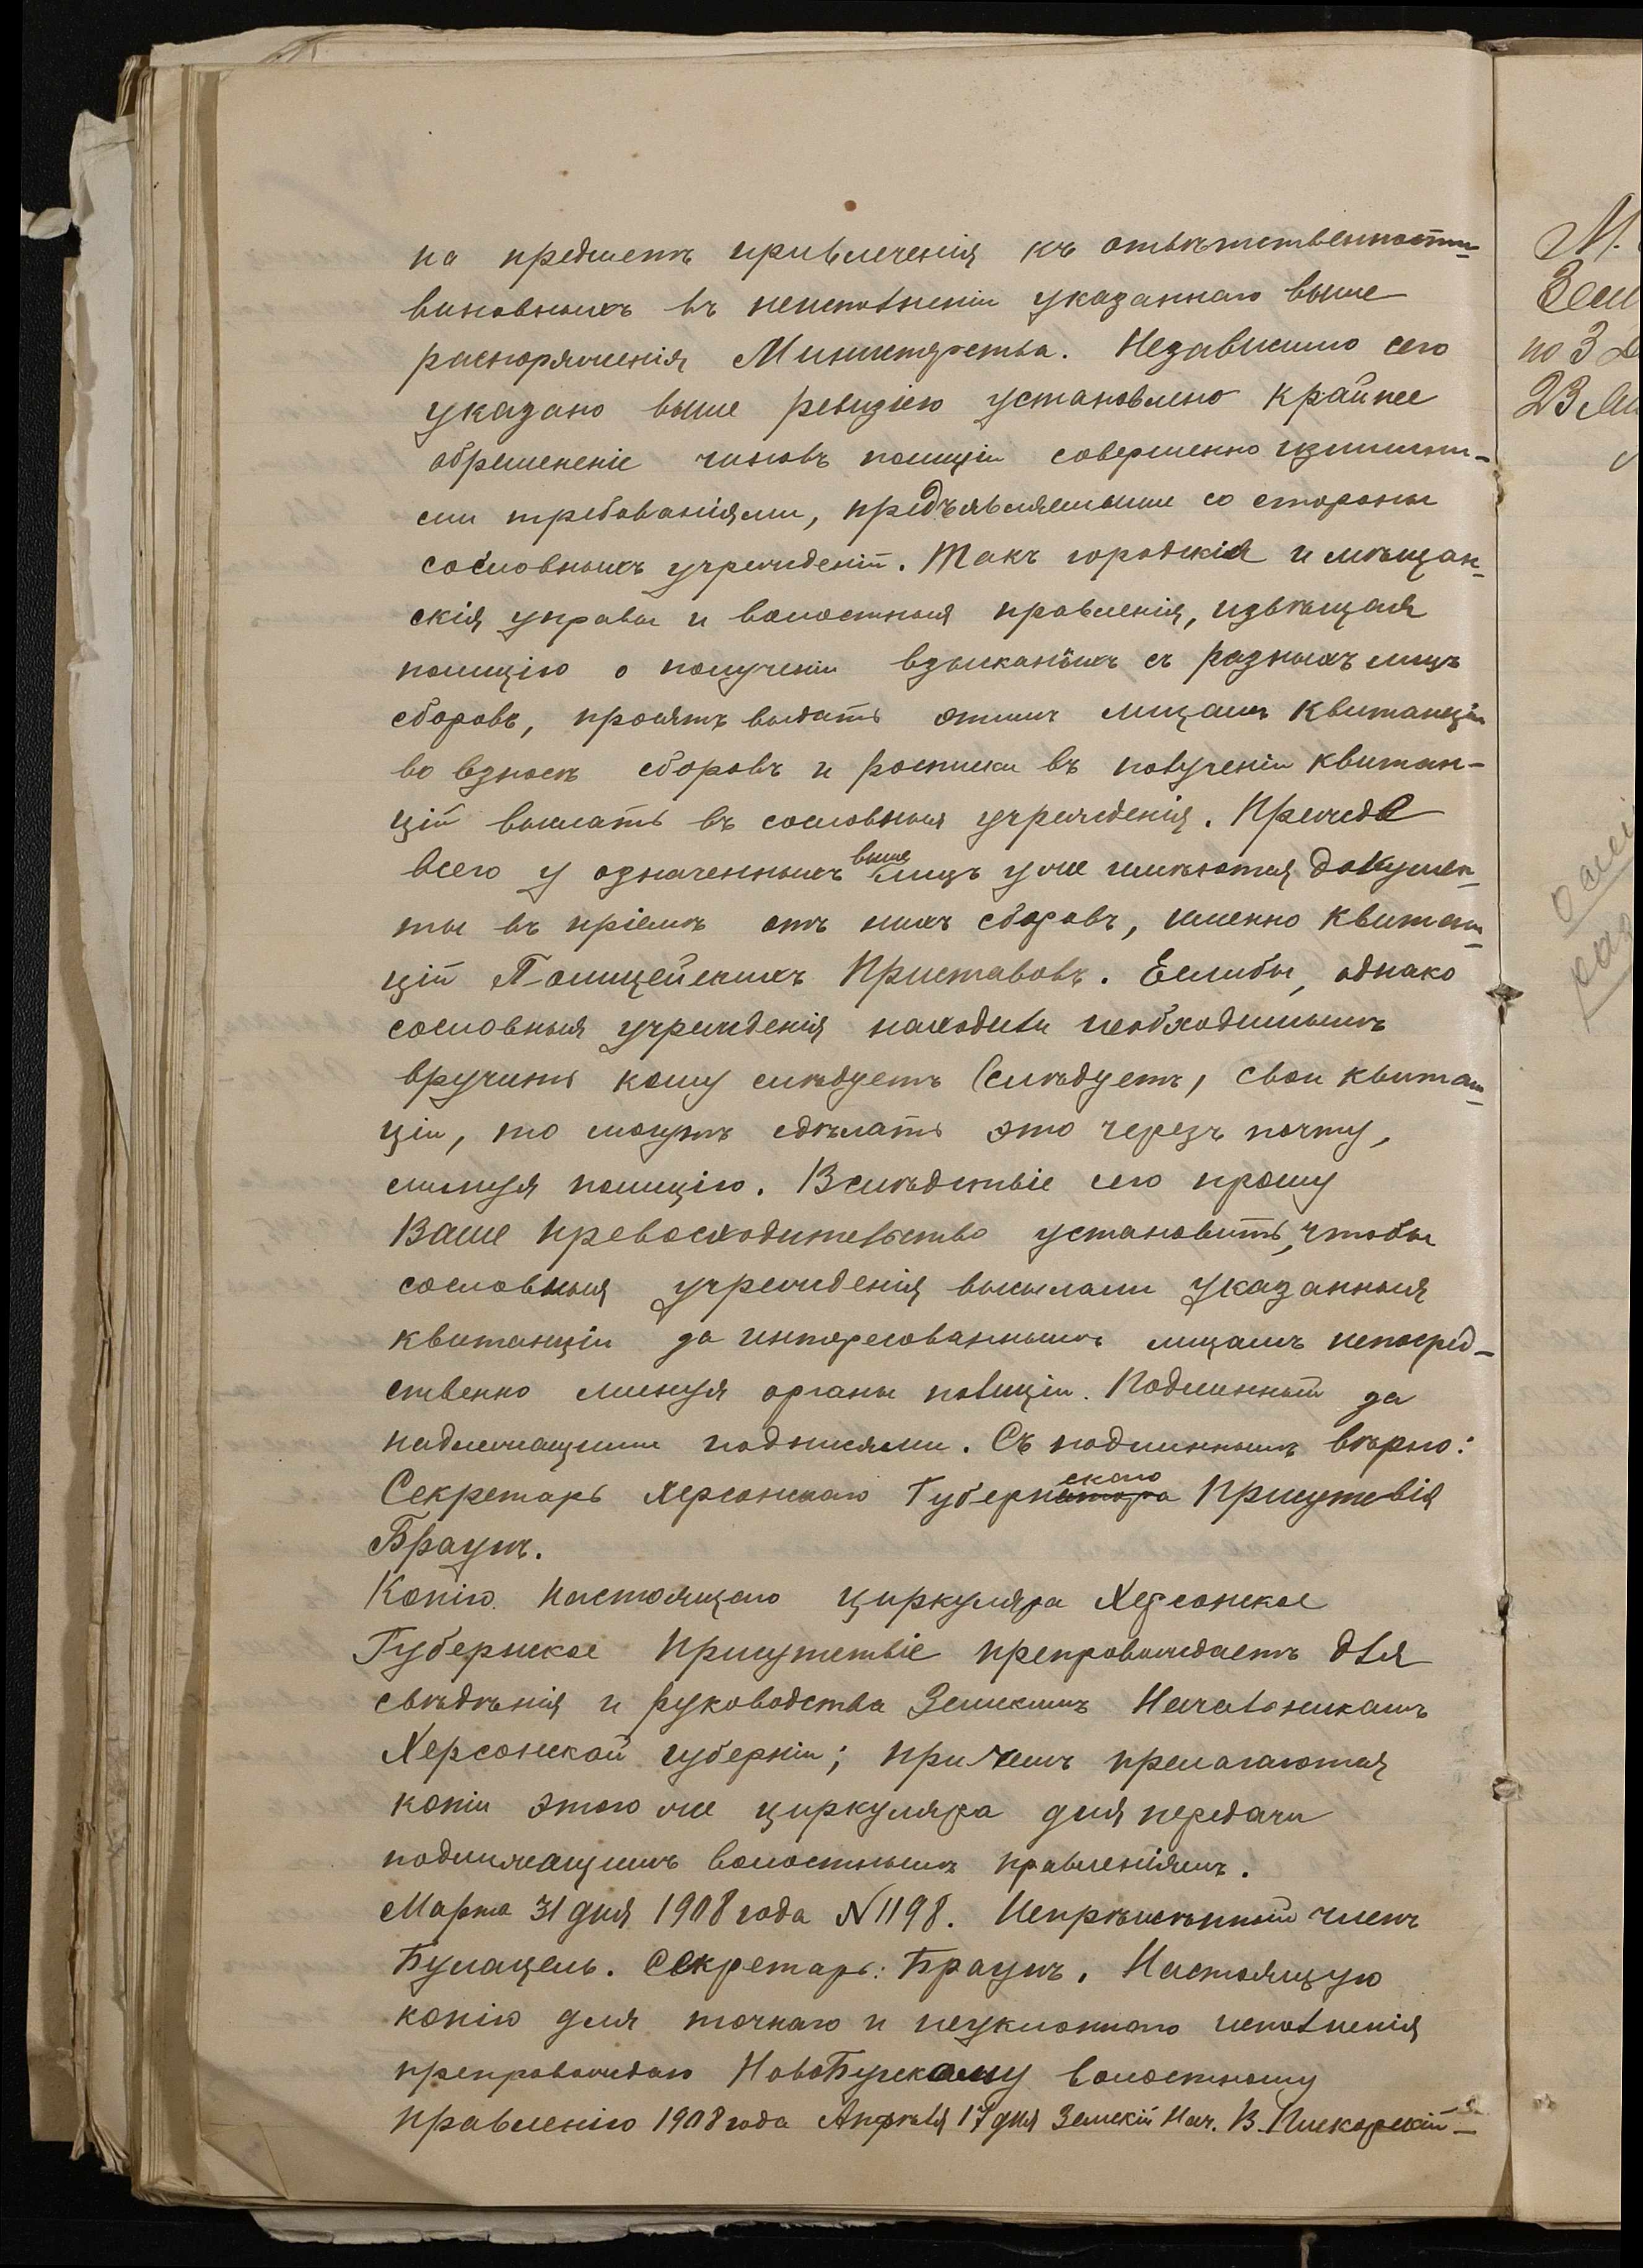 на предметъ привлеченія къ отвѣтственности
виновныхъ въ неисполненіи указаннаго выше
распоряженія Министерства. Независимо сего
указано выше ревизіею установлено крайнее
обремененіе чиновъ полиціи совершенно излишни-
ми требованіями, предъявляемыми со стороны
сословныхъ учрежденій. Такъ городскія и мѣщан-
скія управы и волостныя правленія, извѣщая
полицію о полученіи взысканныхъ съ разныхъ лицъ
сборовъ, просятъ выдать этимъ лицамъ квитанціи
во взносѣ сборовъ и росписки въ полученіи квитан-
цій выслать въ сословныя учрежденія. Прежде
всего у означенныхъ выше лицъ уже имѣются докумен-
ты въ пріемѣ отъ нихъ сборовъ, именно квитан-
цій Полицейскихъ Приставовъ. Еслибы, однако
сословныя учрежденія находили необходимымъ
вручить кому слѣдуетъ (слѣдуетъ, свои квитан-
ціи, то могутъ сдѣлать это черезъ почту,
минуя полицію. Вслѣдствіе сего прошу
Ваше Превосходительство установить, чтобы
сословныя учрежденія высылали указанныя
квитанціи за интересованнымъ лицамъ непосред-
ственно минуя органы полиціи. Подлинный за
надлежащими подписями. Съ подлиннымъ вѣрно:
Секретарь Херсонскаго Губернскаго Присутствія
Браунъ.
Копію настоящаго циркуляра Херсонское
Губернское Присутствіе препровождаетъ для
свѣдѣнія и руководства Земскимъ Начальникамъ
Херсонской губерніи; при чемъ прелагаются
копіи этого же циркуляра для передачи
подлежащимъ волостнымъ правленіямъ.
Марта 31 дня 1908 года №1198. Непремѣнный членъ
Булацель. Секретарь: Браунъ. Настоящую
копію для точнаго и неуклоннаго исполненія
препровождаю НовоБугскому волостному
правленію 1908 года Апрѣля 17 дня Земскій Нач. В. Пискорскій
М.
Зем
по 3
23